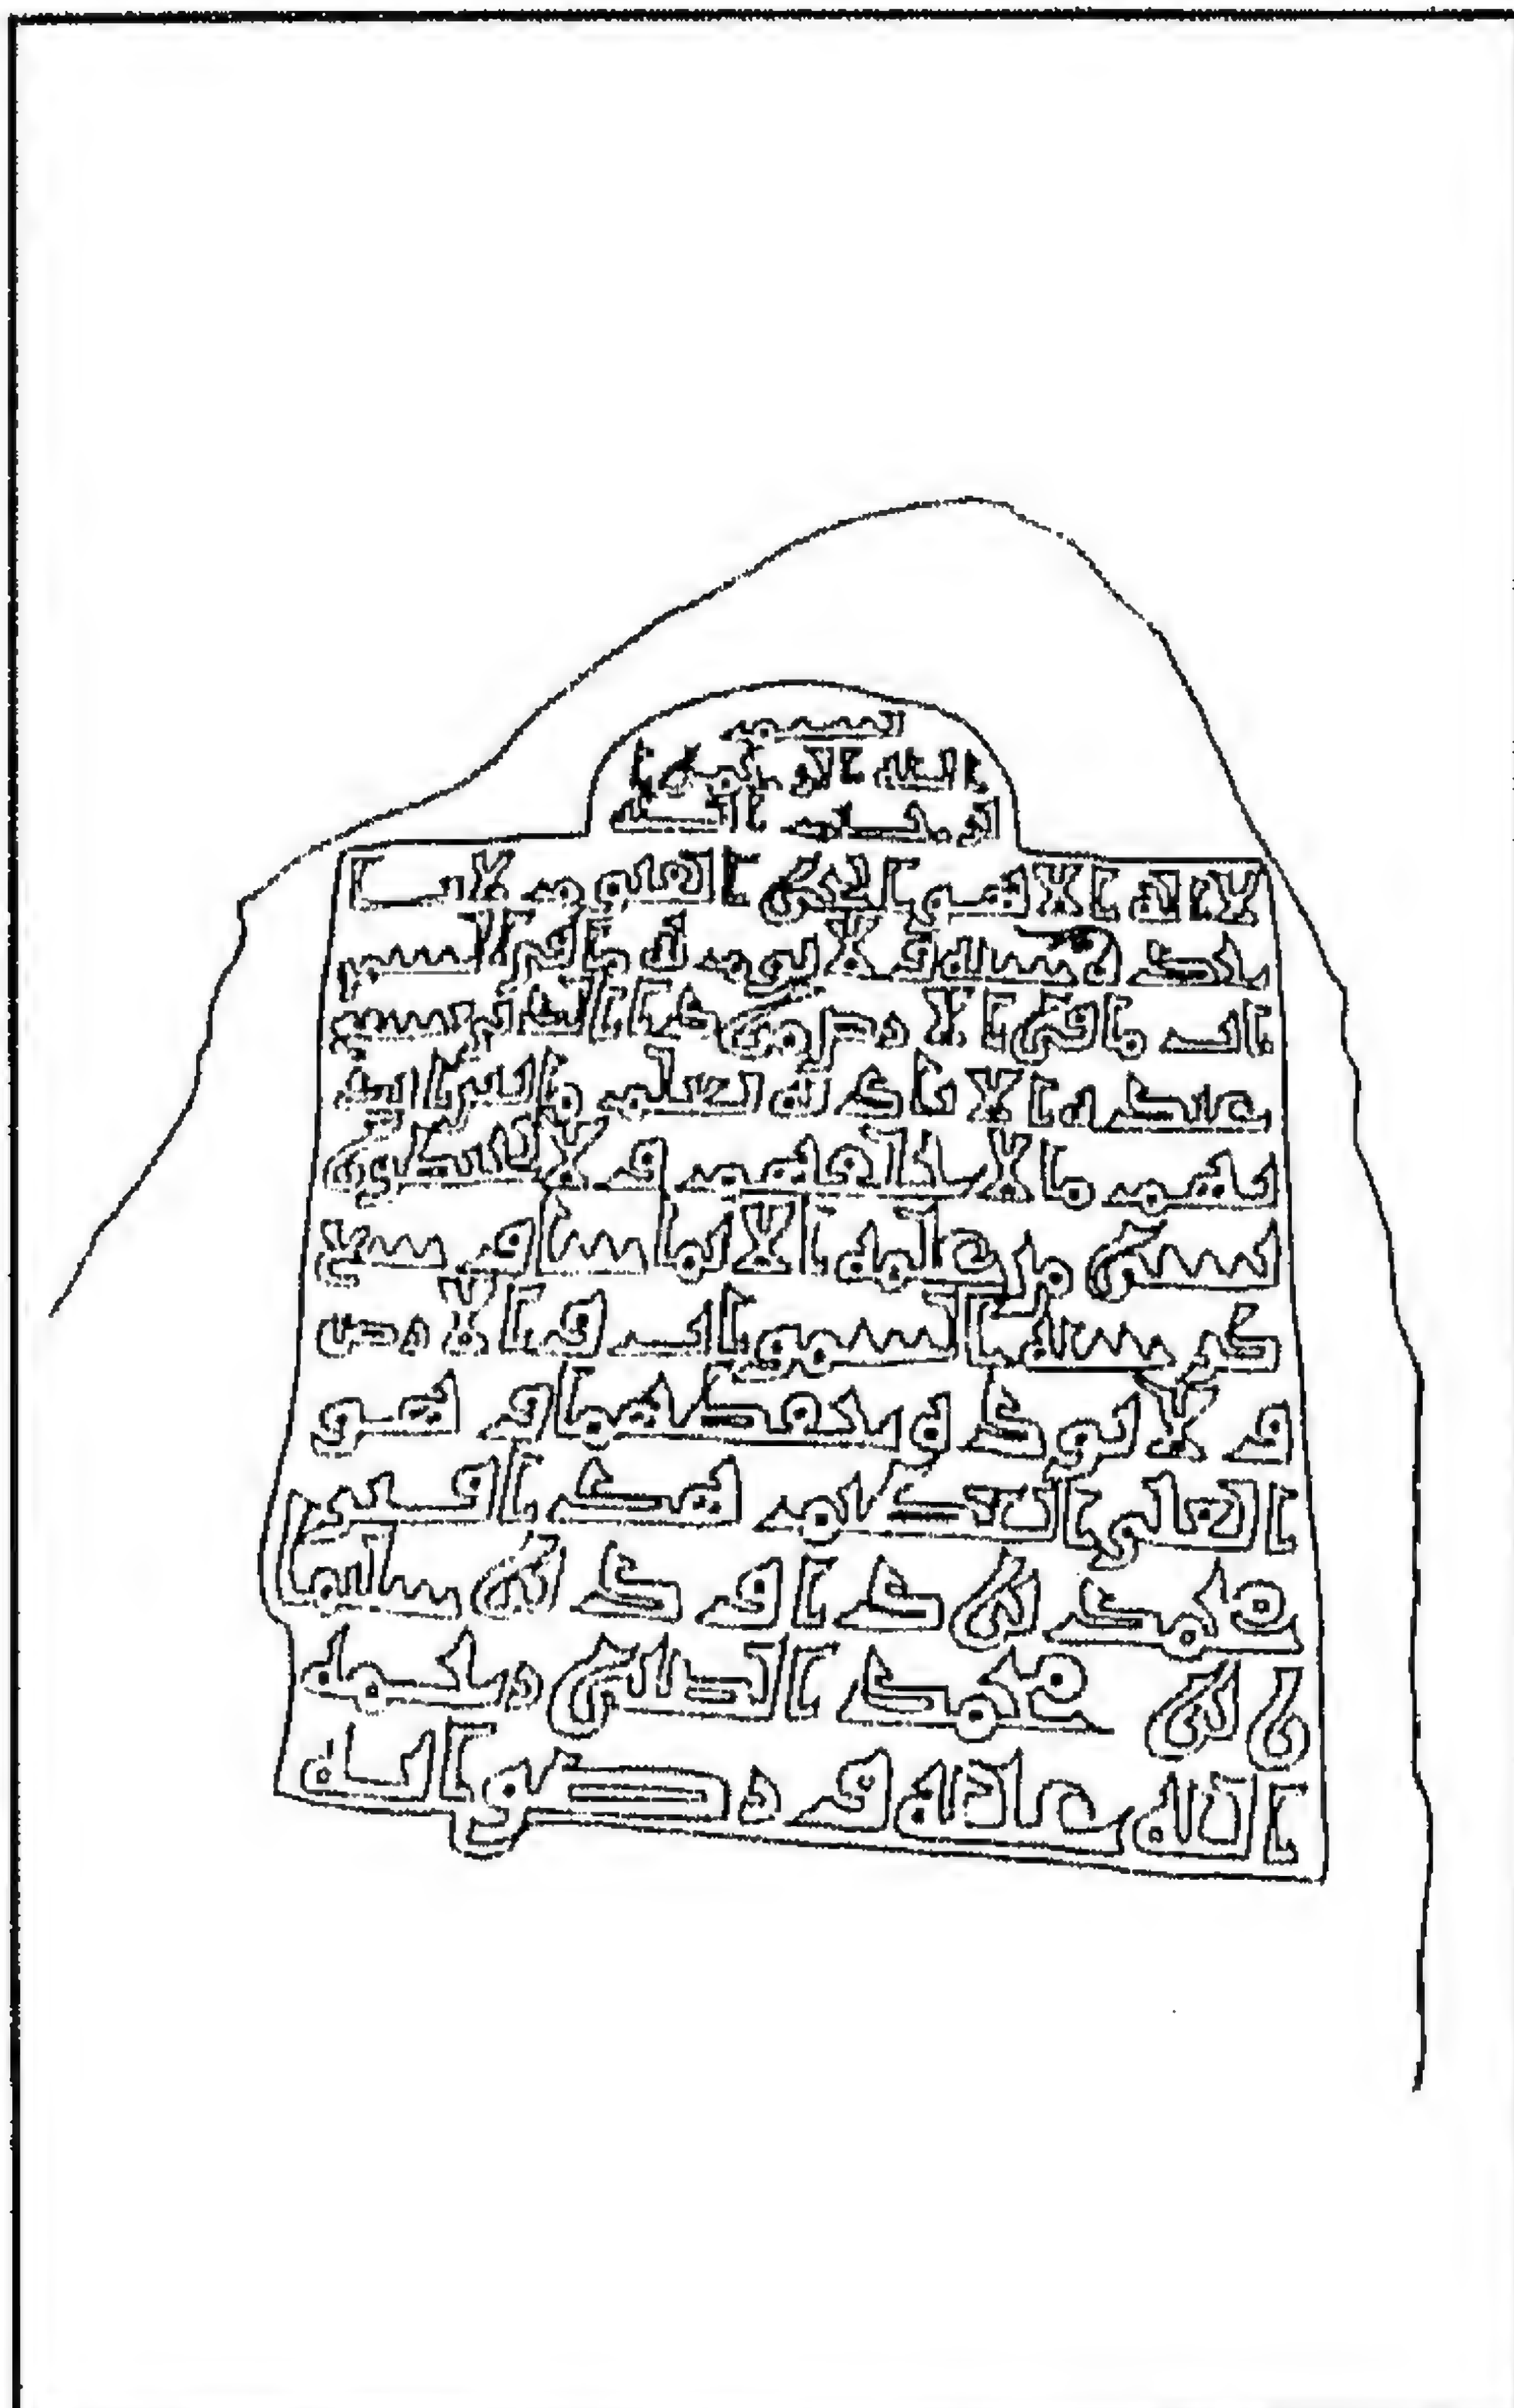 بسم
الله الرحمن ا
لرحيم الله
لا اله الا هو الحي القيوم لا تا
خذه سنه ولا نوم له ما في السمو
ات ما في الارض من ذا الذي يشفع
عنده الا باذنه يعلم ما بين ايد
يهم ما خلفهم ولا يحيطون
بشي من علمه الا بما شا وسع
كرسيه السموات والارض
ولا يوده حفظهما وهو
العلي العظيم هذا قبر
محمد بن داود بن سليما
ن بن محمد رحمه
الله عليه ورضوانه